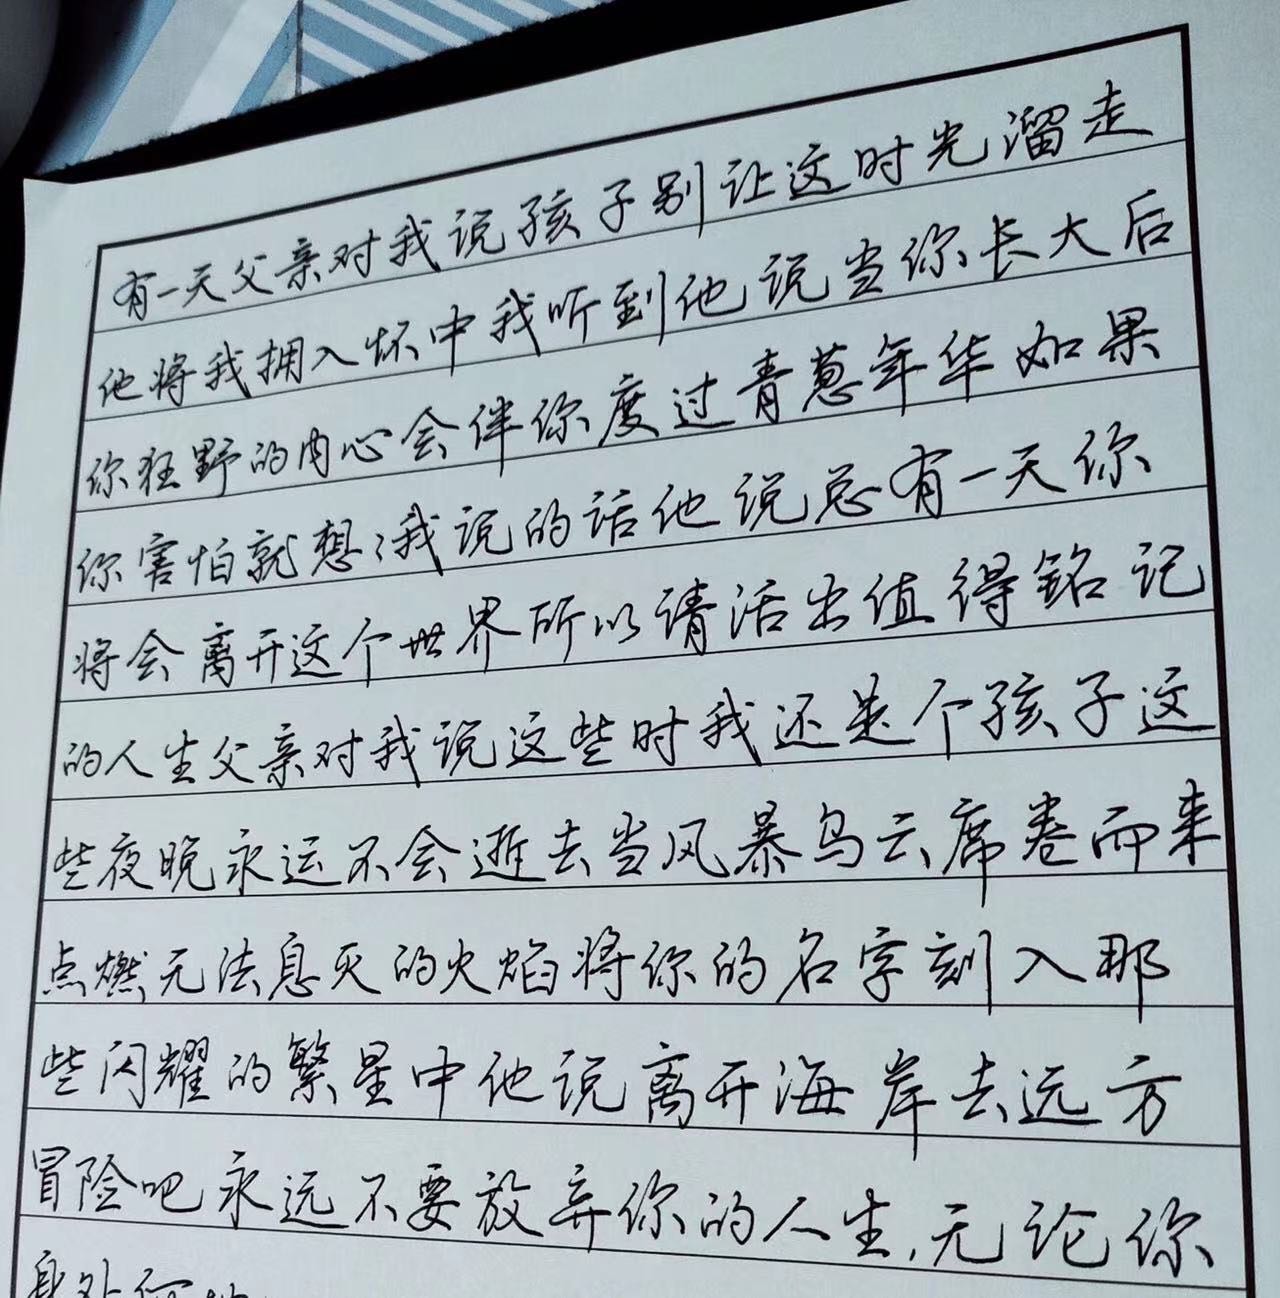 有一天父亲对我说孩子别让这时光溜走
他将我拥入怀中我听到他说当你长大后
你狂野的内心会伴你度过青葱年华如果
你害怕就想想我说的话他说总有一天你
将会离开这个世界所以请活出值得铭记
的人生父亲对我说这些时我还是个孩子这
些夜晚永远不会逝去当风暴乌云席卷而来
点燃无法息灭的火焰将你的名字刻入那
些闪耀的繁星中他说离开海岸去远方
冒险吧永远不要放弃你的人生,无论你
身处何地